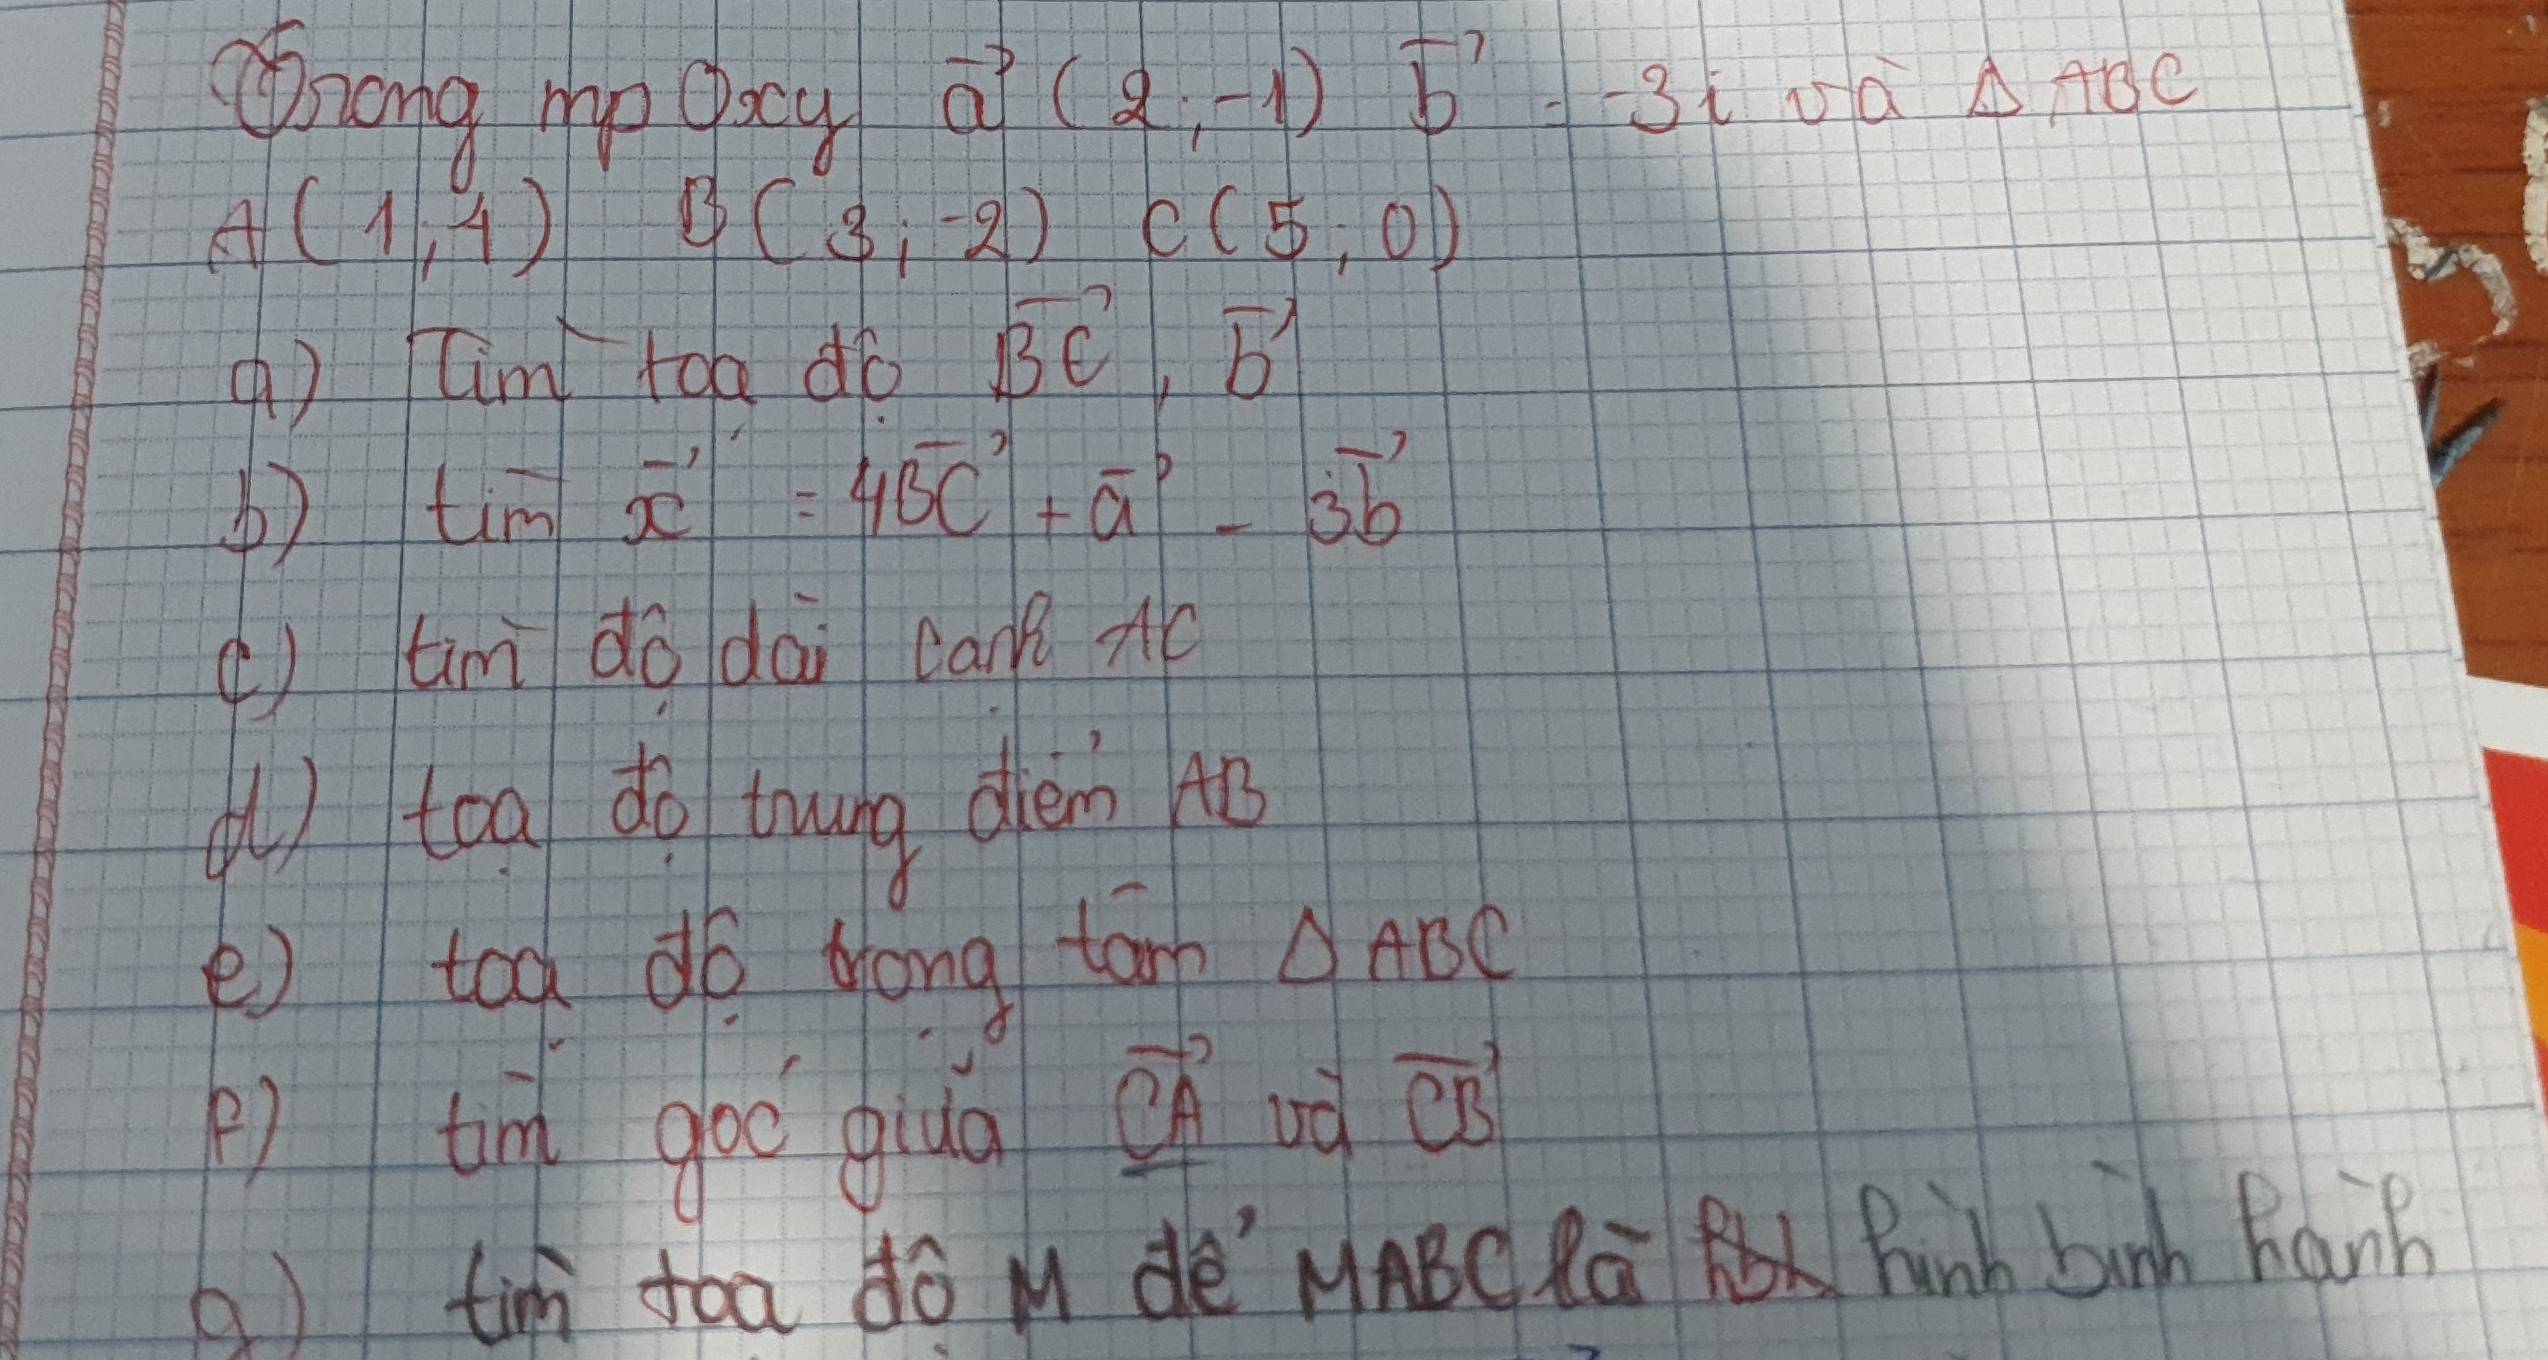 Trong mp Oxy a⃗ (2;-1) b⃗ = -3i và Δ ABC
A(1;4) B(3;-2) C(5;0)
a) Tìm toạ độ BC⃗, b⃗
b) tìm x⃗ = 4BC⃗ + a⃗ - 3b⃗
c) tìm độ dài cạnh AC
d) toạ độ trung điểm AB
e) toạ độ trọng tâm Δ ABC
f) tìm góc giữa CA⃗ và CB⃗
g) tìm toạ độ M để MABC là hbh hình bình hành